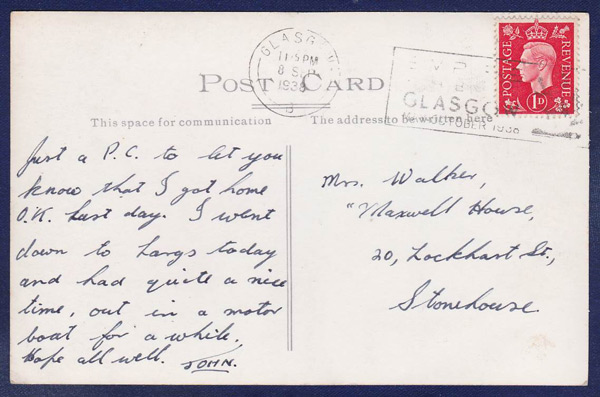 GLASGOW
11:15PM
8 SEP
1938
EMPIRE
GLASGOW
OCTOBER 1938
POSTAGE
REVENUE
1D
POST CARD
This space for communication
The address to be written here
Just a P.C. to let you
know that I got home
O.K. last day. I went
down to Largs today
and had quite a nice
time, out in a motor
boat for a while.
Hope all well. JOHN.
Mrs. Walker,
"Maxwell House,
20, Lockhart St.,
Stonehouse.